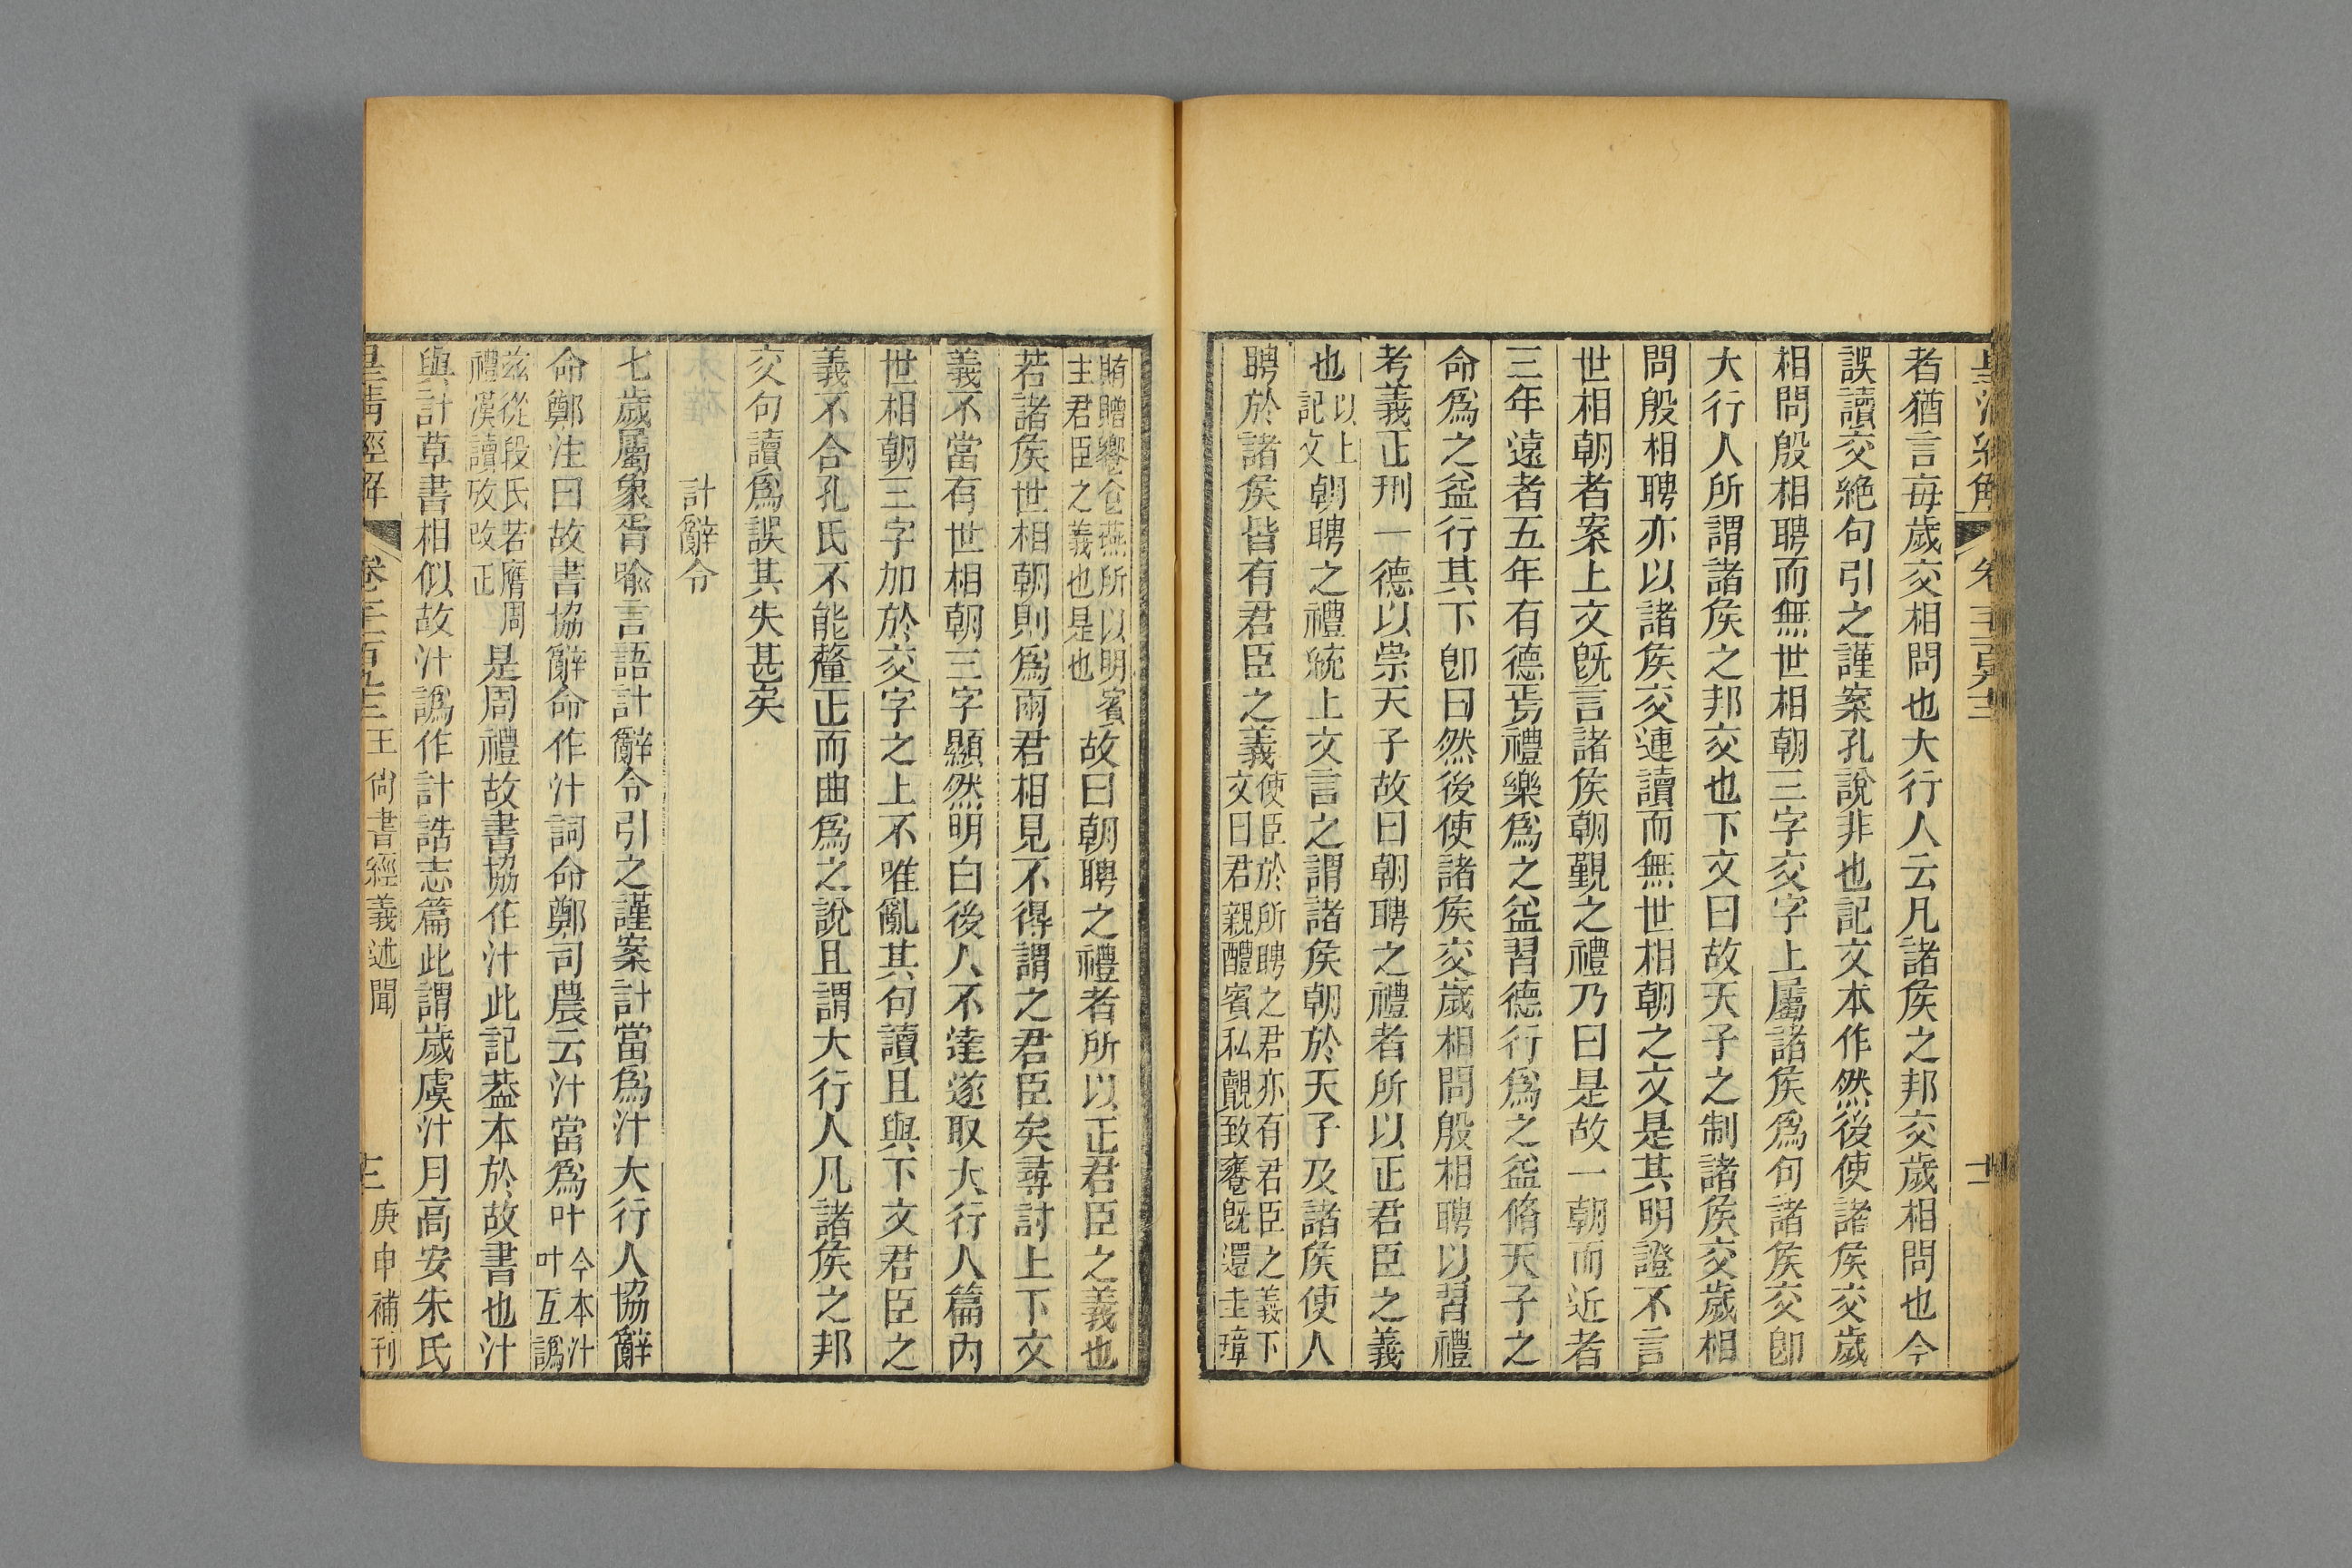 者猶言每歲交相問也大行人云凡諸矦之邦交歲相問也今
誤讀交絶句引之謹案孔說非也記文本作然後使諸矦交歲
相問殷相聘而無世相朝三字交字上屬諸矦爲句諸矦交卽
大行人所謂諸矦之邦交也下文曰故天子之制諸矦交歲相
問殷相聘亦以諸矦交連讀而無世相朝之文是其明證不言
世相朝者案上文旣言諸矦朝覲之禮乃曰是故一朝而近者
三年遠者五年有德焉禮樂爲之益習德行爲之益脩天子之
命爲之益行其下卽曰然後使諸矦交歲相問殷相聘以習禮
考義正刑一德以崇天子故曰朝聘之禮者所以正君臣之義
也以上記文朝聘之禮統上文言之謂諸矦朝於天子及諸矦使人
聘於諸矦皆有君臣之義使臣於所聘之君亦有君臣之義下文曰君親醴賓私覿致饔旣還圭璋
賄贈饗食燕所以明賓主君臣之義也是也故曰朝聘之禮者所以正君臣之義也
若諸矦世相朝則爲兩君相見不得謂之君臣矣尋討上下文
義不當有世相朝三字顯然明白後人不達遂取大行人篇內
世相朝三字加於交字之上不唯亂其句讀且與下文君臣之
義不合孔氏不能釐正而曲爲之說且謂大行人凡諸矦之邦
交句讀爲誤其失甚矣
計辭令
七歲屬象胥喻言語計辭令引之謹案計當爲汁大行人協辭
命鄭注曰故書協辭命作汁詞命鄭司農云汁當爲叶今本汁叶互譌
兹從段氏若膺周禮漢讀攷改正是周禮故書協作汁此記葢本於故書也汁
與計草書相似故汁譌作計誥志篇此謂歲虞汁月高安朱氏
皇淸經解 卷千一百九十三 王尙書經義述聞 庚申補刊